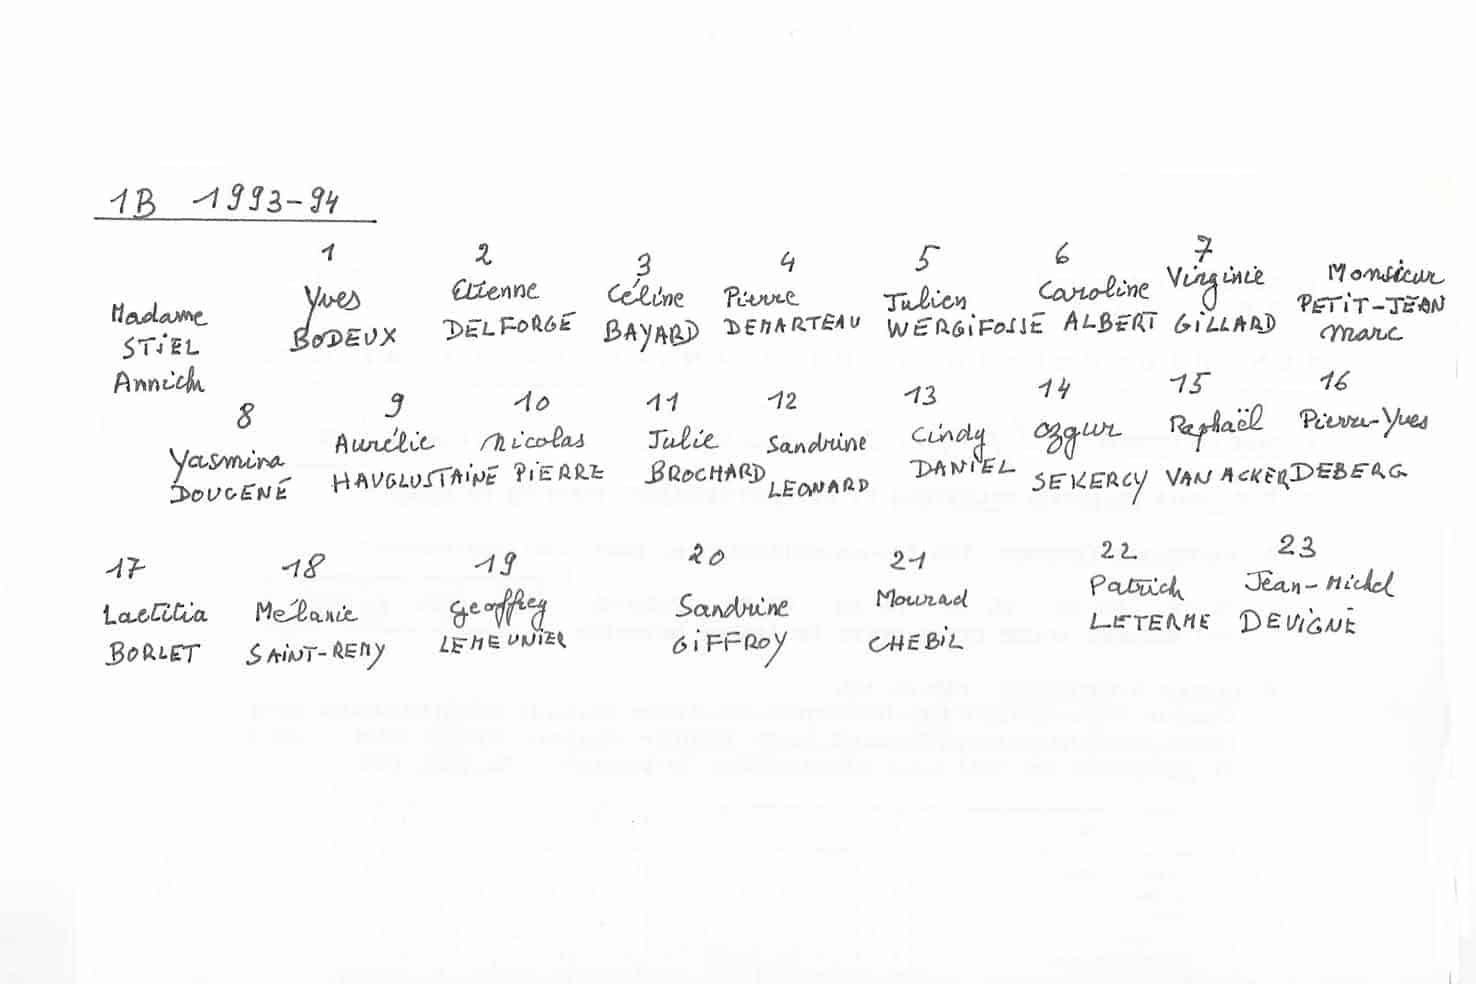 1B 1993-94
1 2 3 4 5 6 7
Madame Yves Etienne Céline Pierre Julien Caroline Virginie Monsieur
STIEL BODEUX DELFORGE BAYARD DEMARTEAU WERGIFOSSE ALBERT GILLARD PETIT-JEAN
Annick Marc
8 9 10 11 12 13 14 15 16
Yasmina Aurélie Nicolas Julie Sandrine Cindy Ozgur Raphaël Pierre-Yves
DOUCENÉ HAUGLUSTAINE PIERRE BROCHARD LEONARD DANIEL SEKERCY VAN ACKER DEBERG
17 18 19 20 21 22 23
Laetitia Mélanie Geoffrey Sandrine Mourad Patrick Jean-Michel
BORLET SAINT-REMY LEMEUNIER GIFFROY CHEBIL LETERME DEVIGNÉ